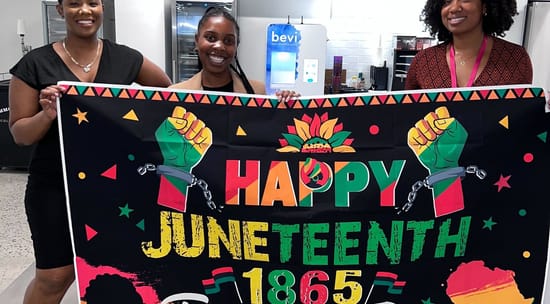 bevi
HAPPY
JUNETEENTH
1865